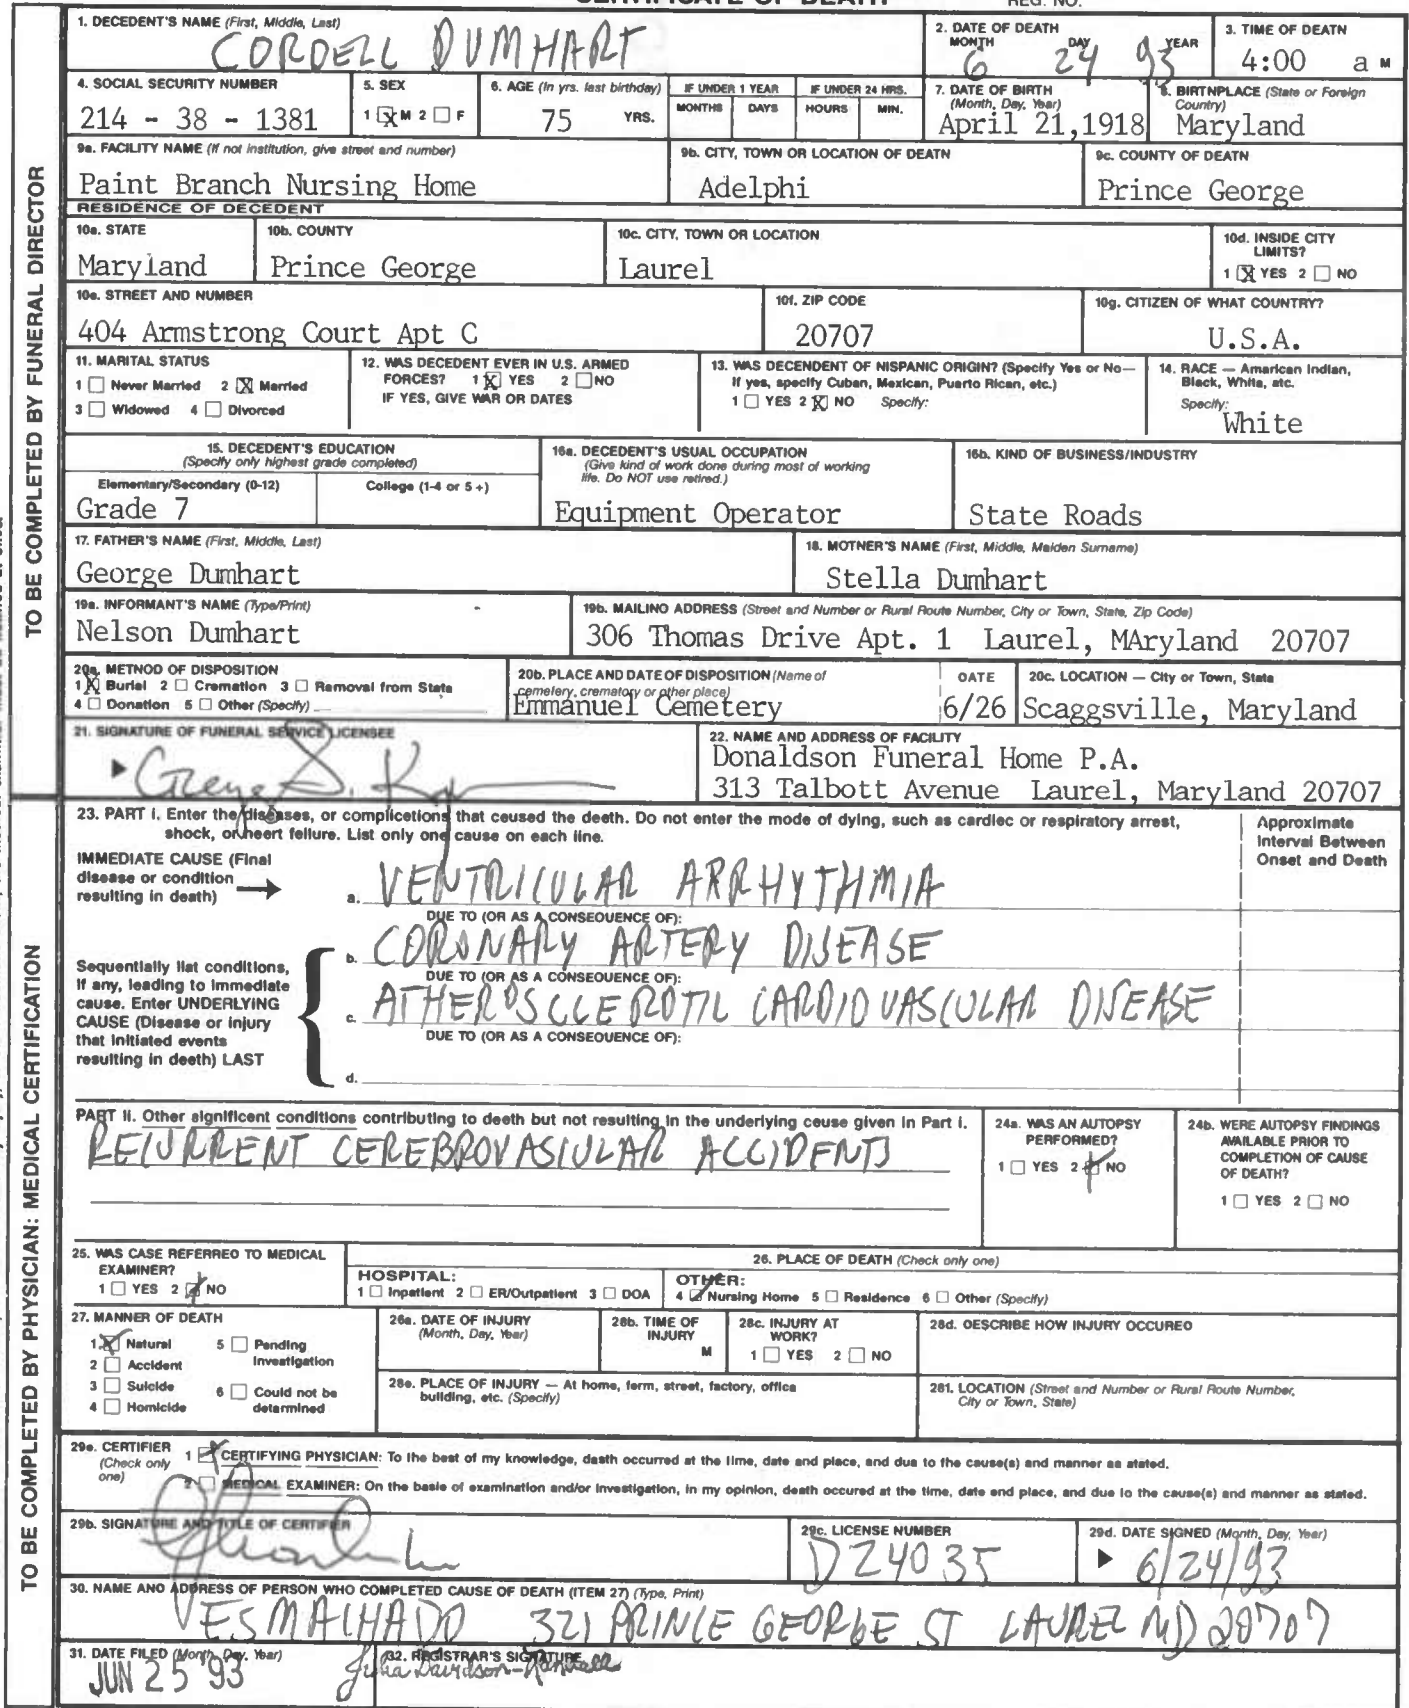 CERTIFICATE OF DEATH REG. NO.
1. DECEDENT'S NAME (First, Middle, Last)
CORDELL DUMHART
2. DATE OF DEATH
MONTH DAY YEAR
6 24 93
3. TIME OF DEATH
4:00 a M
4. SOCIAL SECURITY NUMBER
214 - 38 - 1381
5. SEX
1 ☒ M 2 ☐ F
6. AGE (In yrs. last birthday)
75 YRS.
IF UNDER 1 YEAR
MONTHS DAYS
IF UNDER 24 HRS.
HOURS MIN.
7. DATE OF BIRTH
(Month, Day, Year)
April 21,1918
8. BIRTHPLACE (State or Foreign
Country)
Maryland
9a. FACILITY NAME (If not institution, give street and number)
Paint Branch Nursing Home
9b. CITY, TOWN OR LOCATION OF DEATH
Adelphi
9c. COUNTY OF DEATH
Prince George
RESIDENCE OF DECEDENT
10a. STATE
Maryland
10b. COUNTY
Prince George
10c. CITY, TOWN OR LOCATION
Laurel
10d. INSIDE CITY
LIMITS?
1 ☒ YES 2 ☐ NO
10e. STREET AND NUMBER
404 Armstrong Court Apt C
10f. ZIP CODE
20707
10g. CITIZEN OF WHAT COUNTRY?
U.S.A.
11. MARITAL STATUS
1 ☐ Never Married 2 ☒ Married
3 ☐ Widowed 4 ☐ Divorced
12. WAS DECEDENT EVER IN U.S. ARMED
FORCES? 1 ☒ YES 2 ☐ NO
IF YES, GIVE WAR OR DATES
13. WAS DECENDENT OF HISPANIC ORIGIN? (Specify Yes or No—
If yes, specify Cuban, Mexican, Puerto Rican, etc.)
1 ☐ YES 2 ☒ NO Specify:
14. RACE — American Indian,
Black, White, etc.
Specify:
White
15. DECEDENT'S EDUCATION
(Specify only highest grade completed)
Elementary/Secondary (0-12) College (1-4 or 5 +)
Grade 7
16a. DECEDENT'S USUAL OCCUPATION
(Give kind of work done during most of working
life. Do NOT use retired.)
Equipment Operator
16b. KIND OF BUSINESS/INDUSTRY
State Roads
17. FATHER'S NAME (First, Middle, Last)
George Dumhart
18. MOTHER'S NAME (First, Middle, Maiden Surname)
Stella Dumhart
19a. INFORMANT'S NAME (Type/Print)
Nelson Dumhart
19b. MAILING ADDRESS (Street and Number or Rural Route Number, City or Town, State, Zip Code)
306 Thomas Drive Apt. 1 Laurel, MAryland 20707
20a. METHOD OF DISPOSITION
1 ☒ Burial 2 ☐ Cremation 3 ☐ Removal from State
4 ☐ Donation 5 ☐ Other (Specify)
20b. PLACE AND DATE OF DISPOSITION (Name of
cemetery, crematory or other place)
Emmanuel Cemetery
DATE
6/26
20c. LOCATION — City or Town, State
Scaggsville, Maryland
21. SIGNATURE OF FUNERAL SERVICE LICENSEE
22. NAME AND ADDRESS OF FACILITY
Donaldson Funeral Home P.A.
313 Talbott Avenue Laurel, Maryland 20707
TO BE COMPLETED BY FUNERAL DIRECTOR
23. PART I. Enter the diseases, or complications that caused the death. Do not enter the mode of dying, such as cardiac or respiratory arrest,
shock, or heart failure. List only one cause on each line.
Approximate
Interval Between
Onset and Death
IMMEDIATE CAUSE (Final
disease or condition
resulting in death)
a. VENTRICULAR ARRHYTHMIA
DUE TO (OR AS A CONSEQUENCE OF):
b. CORONARY ARTERY DISEASE
DUE TO (OR AS A CONSEQUENCE OF):
c. ATHEROSCLEROTIC CARDIOVASCULAR DISEASE
DUE TO (OR AS A CONSEQUENCE OF):
d.
Sequentially list conditions,
If any, leading to immediate
cause. Enter UNDERLYING
CAUSE (Disease or injury
that initiated events
resulting in death) LAST
PART II. Other significant conditions contributing to death but not resulting in the underlying cause given in Part I.
RECURRENT CEREBROVASCULAR ACCIDENTS
24a. WAS AN AUTOPSY
PERFORMED?
1 ☐ YES 2 ☒ NO
24b. WERE AUTOPSY FINDINGS
AVAILABLE PRIOR TO
COMPLETION OF CAUSE
OF DEATH?
1 ☐ YES 2 ☐ NO
25. WAS CASE REFERRED TO MEDICAL
EXAMINER?
1 ☐ YES 2 ☒ NO
26. PLACE OF DEATH (Check only one)
HOSPITAL:
1 ☐ Inpatient 2 ☐ ER/Outpatient 3 ☐ DOA
OTHER:
4 ☑ Nursing Home 5 ☐ Residence 6 ☐ Other (Specify)
27. MANNER OF DEATH
1 ☒ Natural 5 ☐ Pending
Investigation
2 ☐ Accident
3 ☐ Suicide 6 ☐ Could not be
determined
4 ☐ Homicide
28a. DATE OF INJURY
(Month, Day, Year)
28b. TIME OF
INJURY
M
28c. INJURY AT
WORK?
1 ☐ YES 2 ☐ NO
28d. DESCRIBE HOW INJURY OCCURED
28e. PLACE OF INJURY — At home, farm, street, factory, office
building, etc. (Specify)
28f. LOCATION (Street and Number or Rural Route Number,
City or Town, State)
29a. CERTIFIER
(Check only
one)
1 ☒ CERTIFYING PHYSICIAN: To the best of my knowledge, death occurred at the time, date and place, and due to the cause(s) and manner as stated.
2 ☐ MEDICAL EXAMINER: On the basis of examination and/or investigation, in my opinion, death occured at the time, date and place, and due to the cause(s) and manner as stated.
29b. SIGNATURE AND TITLE OF CERTIFIER
29c. LICENSE NUMBER
D24035
29d. DATE SIGNED (Month, Day, Year)
6/24/93
30. NAME AND ADDRESS OF PERSON WHO COMPLETED CAUSE OF DEATH (ITEM 27) (Type, Print)
ES MACHADO 321 PRINCE GEORGE ST LAUREL MD 20707
31. DATE FILED (Month, Day, Year)
JUN 25 93
32. REGISTRAR'S SIGNATURE
Julia Davidson-Randall
TO BE COMPLETED BY PHYSICIAN: MEDICAL CERTIFICATION